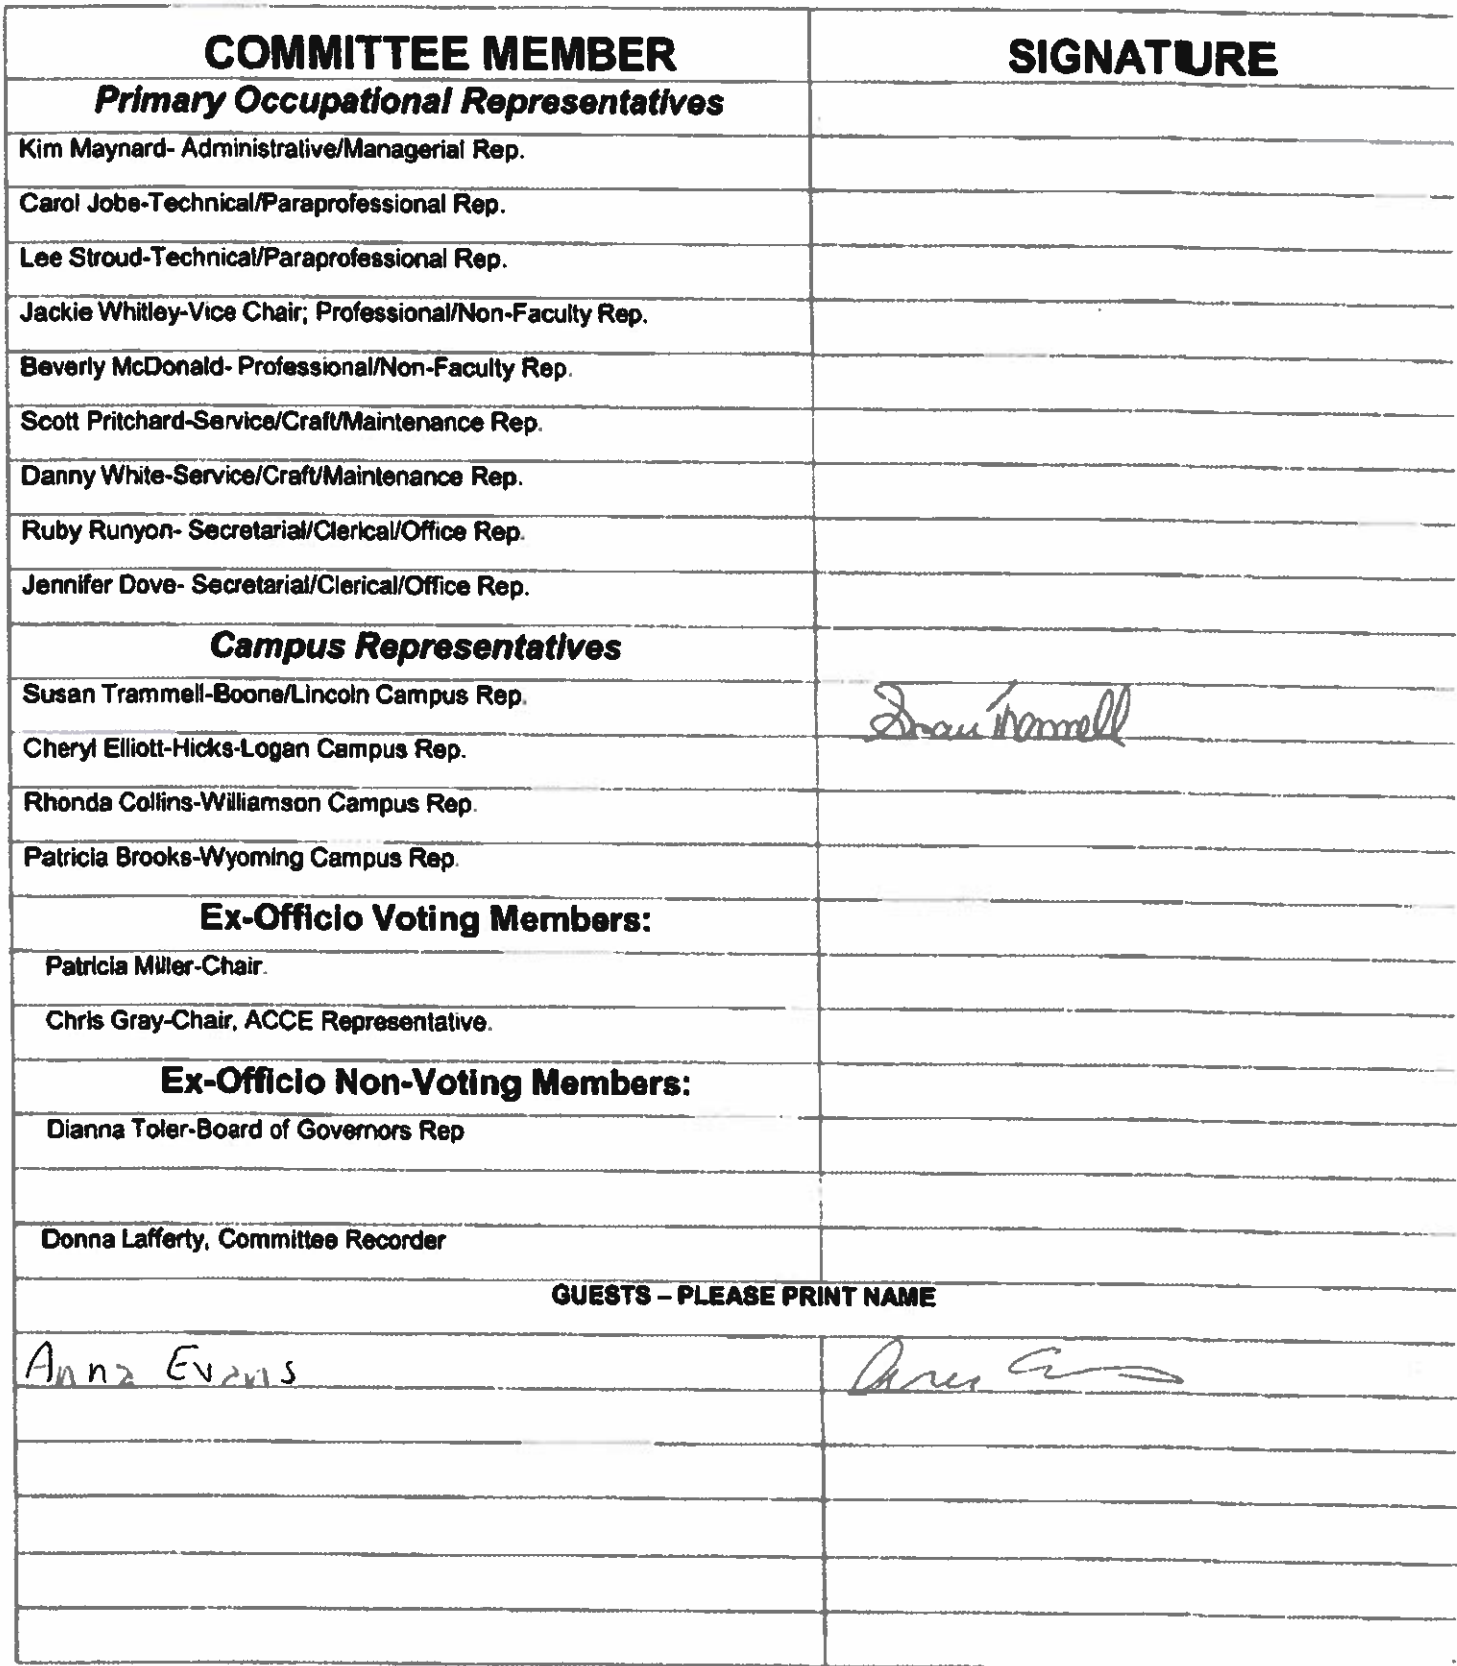 COMMITTEE MEMBER SIGNATURE
Primary Occupational Representatives
Kim Maynard- Administrative/Managerial Rep.
Carol Jobe-Technical/Paraprofessional Rep.
Lee Stroud-Technical/Paraprofessional Rep.
Jackie Whitley-Vice Chair; Professional/Non-Faculty Rep.
Beverly McDonald- Professional/Non-Faculty Rep.
Scott Pritchard-Service/Craft/Maintenance Rep.
Danny White-Service/Craft/Maintenance Rep.
Ruby Runyon- Secretarial/Clerical/Office Rep.
Jennifer Dove- Secretarial/Clerical/Office Rep.
Campus Representatives
Susan Trammell-Boone/Lincoln Campus Rep. Susan Trammell
Cheryl Elliott-Hicks-Logan Campus Rep.
Rhonda Collins-Williamson Campus Rep.
Patricia Brooks-Wyoming Campus Rep.
Ex-Officio Voting Members:
Patricia Miller-Chair.
Chris Gray-Chair, ACCE Representative.
Ex-Officio Non-Voting Members:
Dianna Toler-Board of Governors Rep
Donna Lafferty, Committee Recorder
GUESTS – PLEASE PRINT NAME
Anna Evans